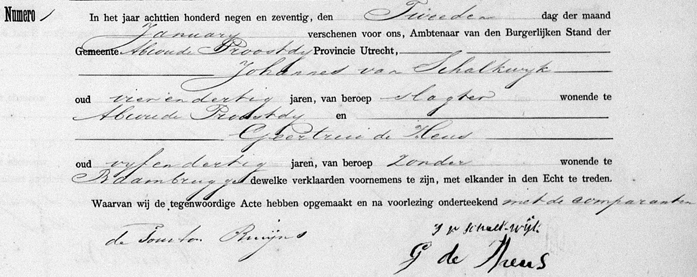 Numero 1 In het jaar achttien honderd negen en zeventig, den Tweeden dag der maand
January verschenen voor ons, Ambtenaar van den Burgerlijken Stand der
Gemeente Abcoude Proostdy Provincie Utrecht,
Johannes van Schalkwyk
oud vier en dertig jaren, van beroep slagter wonende te
Abcoude Proostdy en
Geertrui de Heus
oud vyf en dertig jaren, van beroep zonder wonende te
Baambrugge dewelke verklaarden voornemens te zijn, met elkander in den Echt te treden.
Waarvan wij de tegenwoordige Acte hebben opgemaakt en na voorlezing onderteekend met de comparanten
J v Schalkwijk
de Ruijns
G de Heus